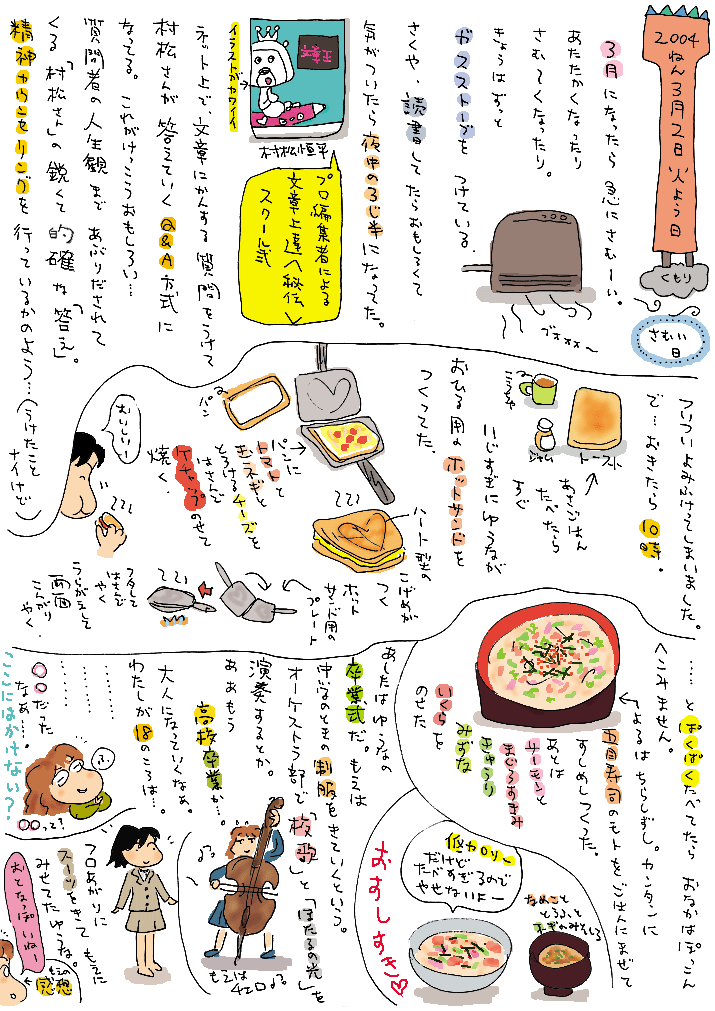 2004
ねん3月2日 火よう日
くもり
さむい日
3月になったら 急にさむーい。
あたたかくなったり
さむーくなったり。
きょうはずっと
ガスストーブを つけている。
ブオォォ〜
さくや、読書してたらおもしろくて
気がついたら 夜中の3じ半になってた。
文章王
村松恒平
イラストがカワイイ
プロ編集者による
文章上達〈秘伝〉
スクール 弐
ネット上で、文章にかんする質問をうけて
村松さんが 答えていく Q&A 方式に
なってる。これがけっこうおもしろい…
質問者の人生観まで あぶりだされて
くる「村松さん」の鋭くて 的確な「答え」。
精神カウンセリングを 行っているかのよう…(うけたこと
ナイけど
ついついよみふけってしまいました。
で…おきたら 10時。
トースト
ジャム
こうちゃ
あさごはん
たべたら
すぐ
いじすぎにゆうなが
おひる用の ホットサンドを
つくってた。
パン
パンに
トマトと
玉ネギと
とろけるチーズを
はさんで
ケチャップのせて
焼く。
おいしい!
ハート型の
こげめが
つく
ホット
サンド用の
プレート
フタして
はさんで
やく
うらがえして
両面
こんがり
やく。
……と ぱくぱくたべてたら おなかはぽっこん
へこみません。
よるは ちらしずし。カンタンに
五目寿司のモトをごはんにまぜて
すしめしつくった。
あとは
サーモンと
まぐろすきみ
きゅうり
みずな
いくらを
のせた
なめこと
とろろと
ネギのみそしる
低カロリー
だけど
すぎるので
たべ
やせないよー
おすしすき♡
あしたはゆうなの
卒業式だ。もえは
中学のときの 制服をきていくという。
オーケストラ部で「校歌」と「ほたるの光」を
演奏するとか。
ああもう
高校卒業か…。
大人になっていくなぁ。
わたしが 18のころは…。
…………
…………
〇〇だった
なぁ…。
ここにはかけない?
ふ…
〇〇って?
もえは
チェロ♪
フロあがりに
スーツをきて もえに
みせてたゆうな。
おとなっぽいねー
もえの
感想